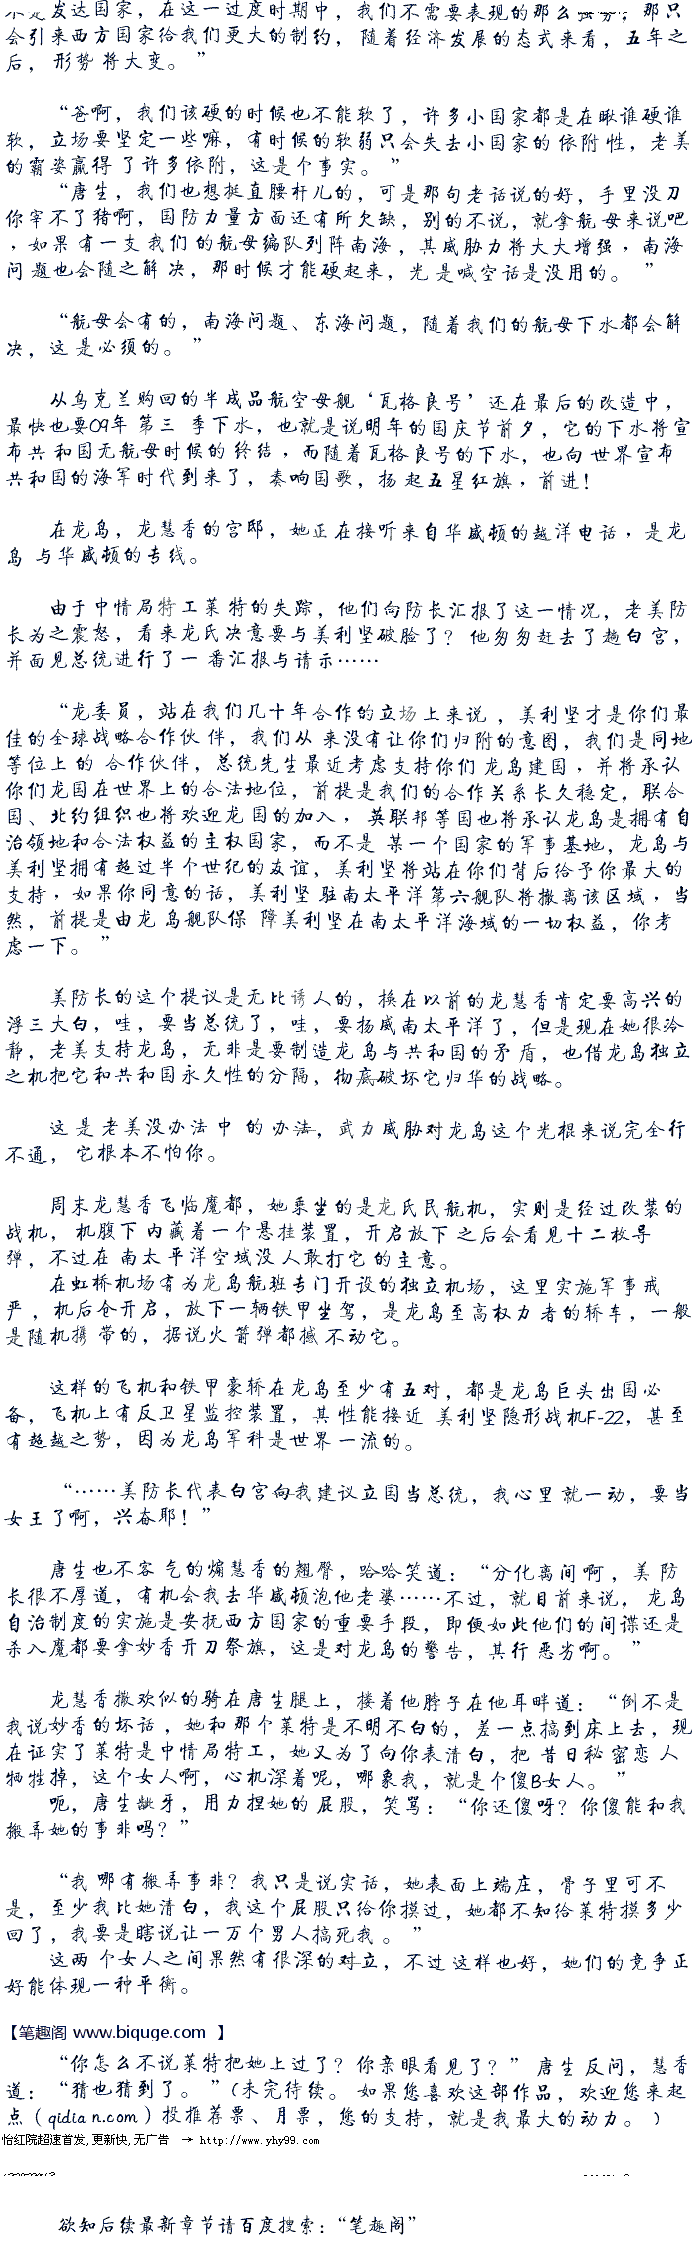 不是发达国家，在这一过度时期中，我们不需要表现的那么强势，那只
会引来西方国家给我们更大的制约，随着经济发展的态式来看，五年之
后，形势将大变。”
“爸啊，我们该硬的时候也不能软了，许多小国家都是在瞅谁硬谁
软，立场要坚定一些嘛，有时候的软弱只会失去小国家的依附性，老美
的霸姿赢得了许多依附，这是个事实。”
“唐生，我们也想挺直腰杆儿的，可是那句老话说的好，手里没刀
你宰不了猪啊，国防力量方面还有所欠缺，别的不说，就拿航母来说吧
，如果有一支我们的航母编队列阵南海，其威胁力将大大增强，南海
问题也会随之解决，那时候才能硬起来，光是喊空话是没用的。”
“航母会有的，南海问题、东海问题，随着我们的航母下水都会解
决，这是必须的。”
从乌克兰购回的半成品航空母舰‘瓦格良号’还在最后的改造中，
最快也要09年第三季下水，也就是说明年的国庆节前夕，它的下水将宣
布共和国无航母时候的终结，而随着瓦格良号的下水，也向世界宣布
共和国的海军时代到来了，奏响国歌，扬起五星红旗，前进！
在龙岛，龙慧香的宫邸，她正在接听来自华盛顿的越洋电话，是龙
岛与华盛顿的专线。
由于中情局特工莱特的失踪，他们向防长汇报了这一情况，老美防
长为之震怒，看来龙氏决意要与美利坚破脸了？他匆匆赶去了趟白宫，
并面见总统进行了一番汇报与请示……
“龙委员，站在我们几十年合作的立场上来说，美利坚才是你们最
佳的全球战略合作伙伴，我们从来没有让你们归附的意图，我们是同地
等位上的合作伙伴，总统先生最近考虑支持你们龙岛建国，并将承认
你们龙国在世界上的合法地位，前提是我们的合作关系长久稳定，联合
国、北约组织也将欢迎龙国的加入，英联邦等国也将承认龙岛是拥有自
治领地和合法权益的主权国家，而不是某一个国家的军事基地，龙岛与
美利坚拥有超过半个世纪的友谊，美利坚将站在你们背后给予你最大的
支持，如果你同意的话，美利坚驻南太平洋第六舰队将撤离该区域，当
然，前提是由龙岛舰队保障美利坚在南太平洋海域的一切权益，你考
虑一下。”
美防长的这个提议是无比诱人的，换在以前的龙慧香肯定要高兴的
浮三大白，哇，要当总统了，哇，要扬威南太平洋了，但是现在她很冷
静，老美支持龙岛，无非是要制造龙岛与共和国的矛盾，也借龙岛独立
之机把它和共和国永久性的分隔，彻底破坏它归华的战略。
这是老美没办法中的办法，武力威胁对龙岛这个光棍来说完全行
不通，它根本不怕你。
周末龙慧香飞临魔都，她乘坐的是龙氏民航机，实则是经过改装的
战机，机腹下内藏着一个悬挂装置，开启放下之后会看见十二枚导
弹，不过在南太平洋空域没人敢打它的主意。
在虹桥机场有为龙岛航班专门开设的独立机场，这里实施军事戒
严，机后仓开启，放下一辆铁甲坐驾，是龙岛至高权力者的轿车，一般
是随机携带的，据说火箭弹都撼不动它。
这样的飞机和铁甲豪轿在龙岛至少有五对，都是龙岛巨头出国必
备，飞机上有反卫星监控装置，其性能接近美利坚隐形战机F-22，甚至
有超越之势，因为龙岛军科是世界一流的。
“……美防长代表白宫向我建议立国当总统，我心里就一动，要当
女王了啊，兴奋耶！”
唐生也不客气的煽慧香的翘臀，哈哈笑道：“分化离间啊，美防
长很不厚道，有机会我去华威顿泡他老婆……不过，就目前来说，龙岛
自治制度的实施是安抚西方国家的重要手段，即便如此他们的间谍还是
杀入魔都要拿妙香开刀祭旗，这是对龙岛的警告，其行恶劣啊。”
龙慧香撒欢似的骑在唐生腿上，搂着他脖子在他耳畔道：“倒不是
我说妙香的坏话，她和那个莱特是不明不白的，差一点搞到床上去，现
在证实了莱特是中情局特工，她又为了向你表清白，把昔日秘密恋人
牺牲掉，这个女人啊，心机深着呢，哪象我，就是个傻B女人。”
呃，唐生龇牙，用力捏她的屁股，笑骂：“你还傻呀？你傻能和我
搬弄她的事非吗？”
“我哪有搬弄事非？我只是说实话，她表面上端庄，骨子里可不
是，至少我比她清白，我这个屁股只给你摸过，她都不知给莱特摸多少
回了，我要是瞎说让一万个男人搞死我。”
这两个女人之间果然有很深的对立，不过这样也好，她们的竞争正
好能体现一种平衡。
【笔趣阁 www.biquge.com 】
“你怎么不说莱特把她上过了？你亲眼看见了？”唐生反问，慧香
道：“猜也猜到了。”（未完待续。如果您喜欢这部作品，欢迎您来起
点（qidian.com）投推荐票、月票，您的支持，就是我最大的动力。）
怡红院超速首发,更新快,无广告 → http://www.yhy99.com
欲知后续最新章节请百度搜索：“笔趣阁”